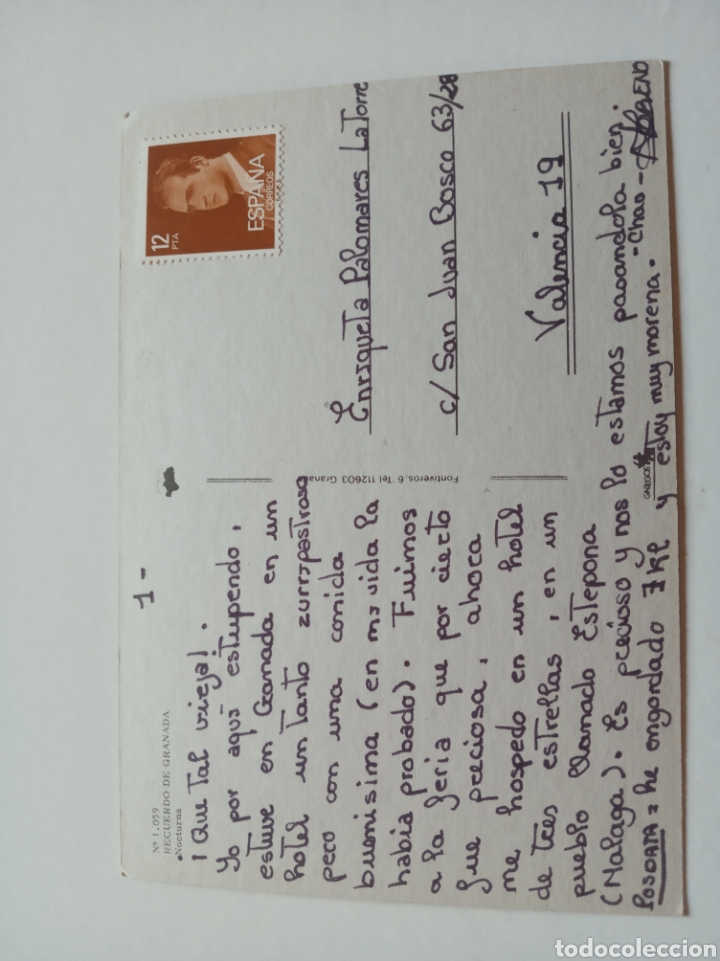 Nº 1.059
RECUERDO DE GRANADA
Nocturna
1-
¡Que Tal vieja!.
Yo por aquí estupendo,
estuve en Granada en un
hotel un tanto zurrspastroso
pero con una comida
buenisima (en mi vida la
habia probado). Fuimos
a la feria que por cierto
fue preciosa, ahora
me hospedo en un hotel
de tres estrellas, en un
pueblo llamado Estepona
(Malaga). Es precioso y nos lo estamos pasandola bien.
POSDATA = he engordado 7 kl y estoy muy morena. - Chao -
Fontiveros, 6 Tel 112603 Granada
GALLEGOS
12
PTA
ESPAÑA
CORREOS
Enriqueta Palomares LaTorre
c/ San Juan Bosco 63/28
Valencia 19
todocoleccion